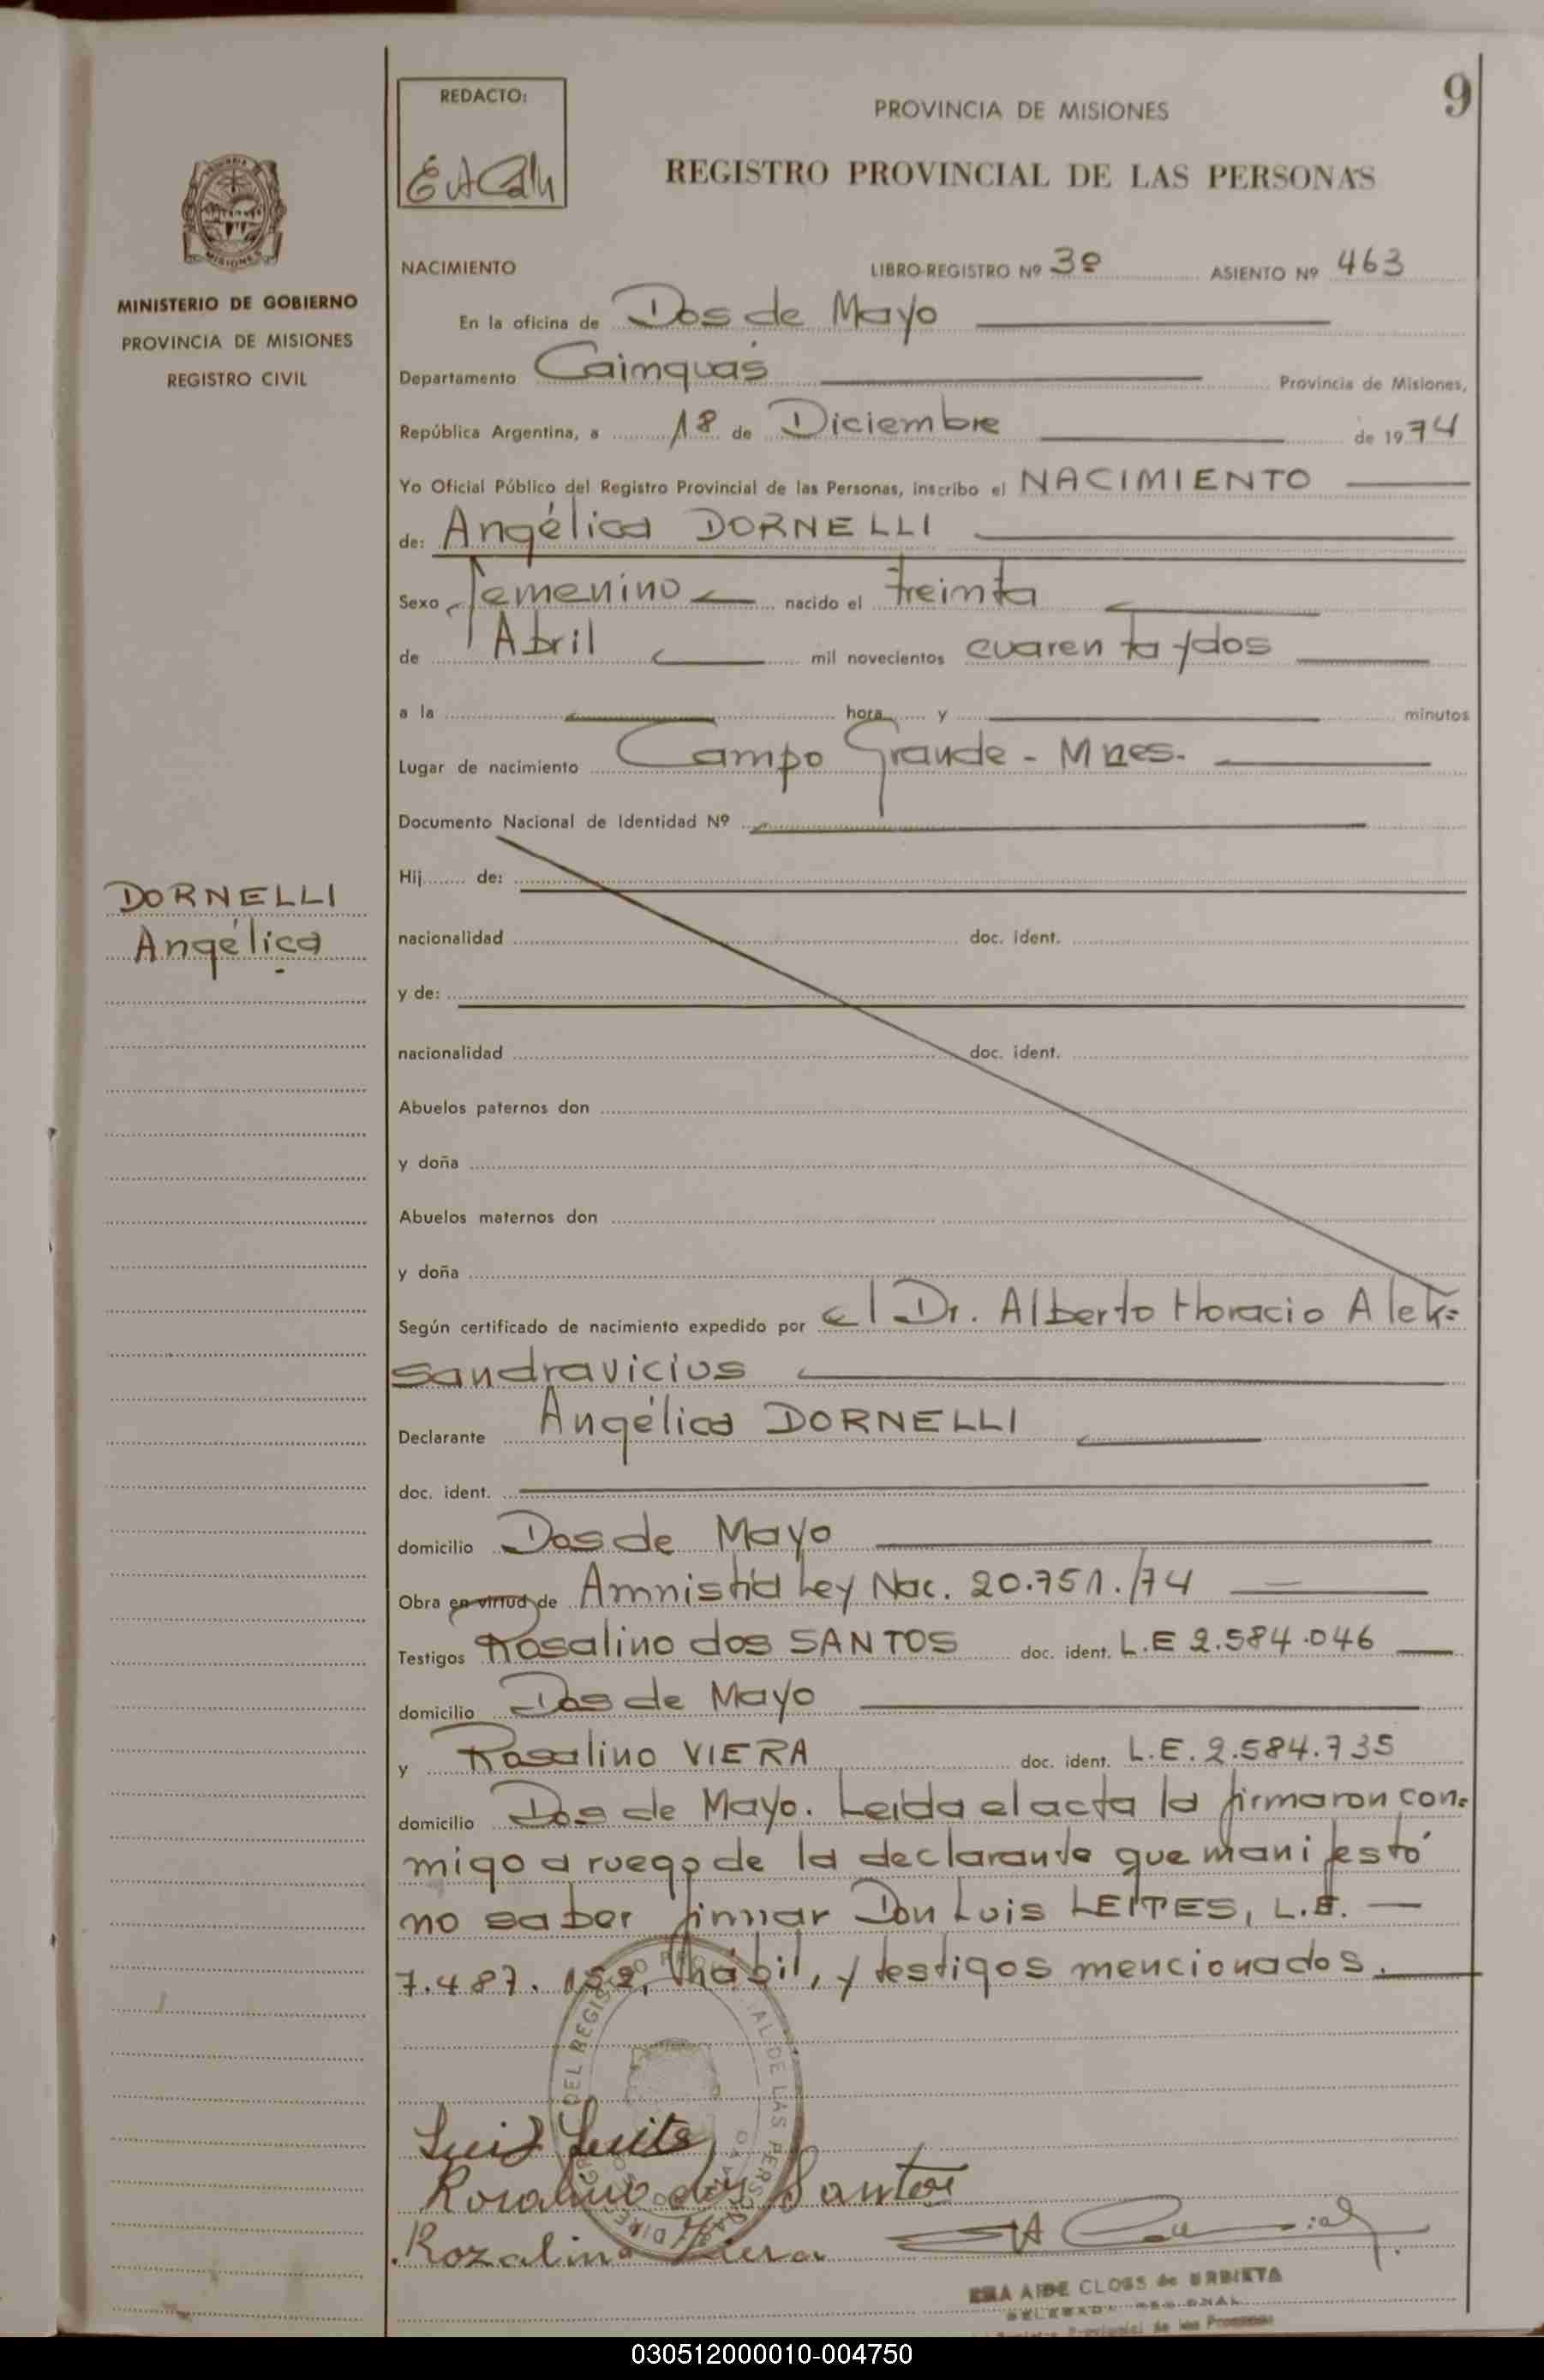 9
REDACTO:
PROVINCIA DE MISIONES
REGISTRO PROVINCIAL DE LAS PERSONAS
MISIONES
MINISTERIO DE GOBIERNO
PROVINCIA DE MISIONES
REGISTRO CIVIL
NACIMIENTO LIBRO-REGISTRO Nº 3º ASIENTO Nº 463
En la oficina de Dos de Mayo
Departamento Caimquás Provincia de Misiones,
República Argentina, a 18 de Diciembre de 1974
Yo Oficial Público del Registro Provincial de las Personas, inscribo el NACIMIENTO
de: Angélica DORNELLI
Sexo femenino nacido el treinta
de Abril mil novecientos cuarenta y dos
a la hora y minutos
Lugar de nacimiento Campo Grande - Mnes.
Documento Nacional de Identidad Nº
DORNELLI
Angélica
Hij de:
nacionalidad doc. ident.
y de:
nacionalidad doc. ident.
Abuelos paternos don
y doña
Abuelos maternos don
y doña
Según certificado de nacimiento expedido por el Dr. Alberto Horacio Alek=
sandravicius
Declarante Angélica DORNELLI
doc. ident.
domicilio Dos de Mayo
Obra en virtud de Amnistía Ley Nac. 20.751./74
Testigos Rosalino dos SANTOS doc. ident. L.E 2.584.046
domicilio Dos de Mayo
y Rosalino VIERA doc. ident. L.E. 2.584.735
domicilio Dos de Mayo. Leída el acta la firmaron con=
migo a ruego de la declarante que manifestó
no saber firmar Don Luis LEITES, L.E.
7.487.152, hábil, y testigos mencionados.
Luis Leites
Rosalino dos Santos
Rozalino Viera
AIDE CLOSS de URBIETA
Provincial de las Personas
030512000010-004750